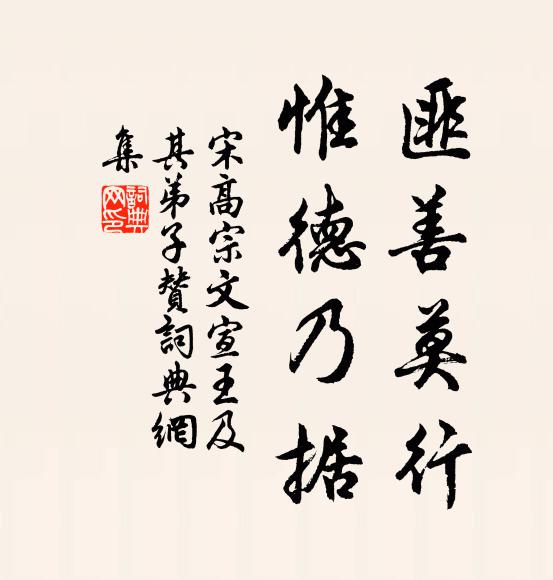 匪善莫行
惟德乃据
宋高宗文宣王及
其弟子赞詞典網
集
詞典網印